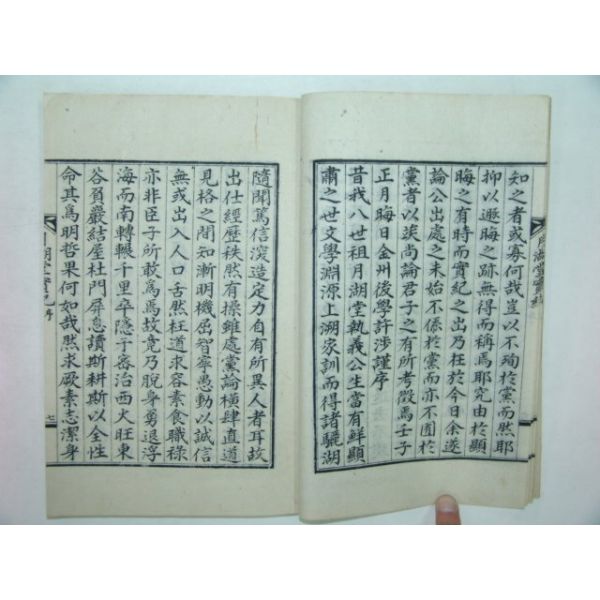 知之者或寡何哉豈以不殉於黨而然耶
抑以遯晦之跡無得而稱焉耶究由於顯
晦之有時而實紀之出乃在於今日余遂
論公出處之末始不係於黨而亦不圂於
黨者以竢尚論君子之有所考徵焉壬子
正月晦日金州後學許涉謹序
昔我八世祖月湖堂執義公生當有鮮顯
肅之世文學淵源上溯家訓而得諸驪湖
隨聞篤信深造定力自有所異人者耳故
出仕經歷秩然有操雖處黨論橫肆直道
見格之間知漸明機屈智牽愚動以誠信
無或出入人口舌然枉道求容素食職祿
亦非臣子所敢爲焉故竟乃脫身勇退浮
海而南轉輾千里卒隱子審治西火旺東
谷負巖結屋杜門屏息讀斯耕斯以全性
命其爲明哲果何如哉然求厥素志潔身
月湖堂實紀序
七